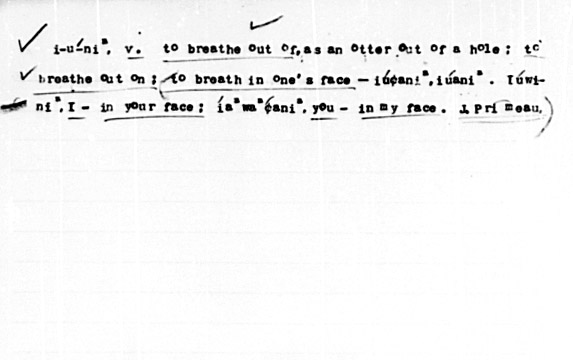 i-u-́niⁿ, v. to breathe out of, as an otter out of a hole; to
breathe out on; (to breath in one's face — iú¢aniⁿ, iúaniⁿ. Iúwi-
niⁿ, I - in your face; íaⁿwaⁿ¢aniⁿ, you - in my face. J. Primeau.)